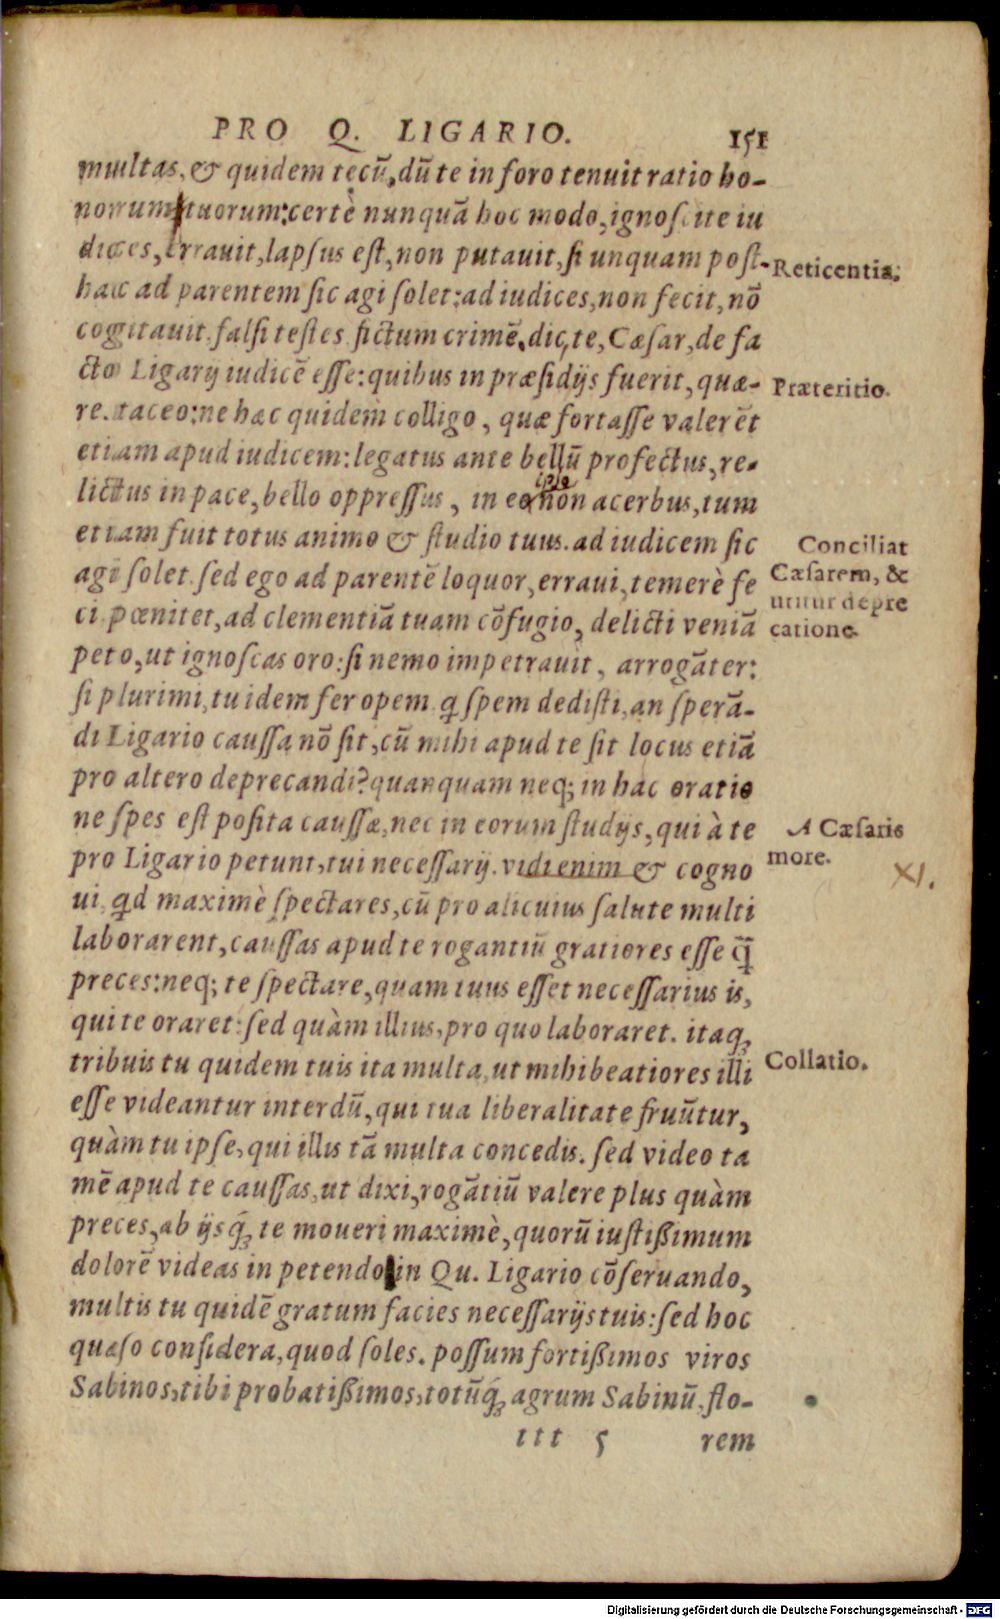 PRO Q. LIGARIO. 151
multas, & quidem tecū, dū te in foro tenuit ratio ho-
norum tuorum: certè nunquā hoc modo, ignoscite iu
dices, errauit, lapsus est, non putauit, si unquam post-
hac ad parentem sic agi solet: ad iudices, non fecit, nō
cogitauit, falsi testes, fictum crimē, dic, te, Cæsar, de fa
cto Ligarij iudicē esse: quibus in præsidijs fuerit, quæ-
re. taceo: ne hæc quidem colligo, quæ fortasse valerēt
etiam apud iudicem: legatus ante bellū profectus, re-
lictus in pace, bello oppressus, in eo non acerbus, tum
ipso
etiam fuit totus animo & studio tuus. ad iudicem sic
agi solet. sed ego ad parentē loquor, erraui, temerè fe
ci, pœnitet, ad clementiā tuam cōfugio, delicti veniā
peto, ut ignoscas oro: si nemo impetrauit, arrogāter:
si plurimi, tu idem fer opem, q spem dedisti, an sperā-
di Ligario caussa nō sit, cū mihi apud te sit locus etiā
pro altero deprecandi? quanquam neq; in hac oratio
ne spes est posita caussæ, nec in eorum studijs, qui à te
pro Ligario petunt, tui necessarij. vidi enim & cogno
ui, qd maximè spectares, cū pro alicuius salute multi
laborarent, caussas apud te rogantiū gratiores esse q̄
preces: neq; te spectare, quam tuus esset necessarius is,
qui te oraret: sed quàm illius, pro quo laboraret. itaq;
tribuis tu quidem tuis ita multa, ut mihi beatiores illi
esse videantur interdū, qui tua liberalitate fruūtur,
quàm tu ipse, qui illis tā multa concedis. sed video ta
mē apud te caussas, ut dixi, rogātiū valere plus quàm
preces, ab ijsq́; te moueri maximè, quorū iustißimum
dolorē videas in petendo in Qu. Ligario cōseruando,
multis tu quidē gratum facies necessarijs tuis: sed hoc
quæso considera, quod soles. possum fortißimos viros
Sabinos, tibi probatißimos, totūq́; agrum Sabinū, flo-
ttt 5 rem
Reticentia.
Præteritio.
Conciliat
Cæsarem, &
utitur depre
catione.
A Cæsaris
more.
XI.
Collatio.
Digitalisierung gefördert durch die Deutsche Forschungsgemeinschaft - DFG